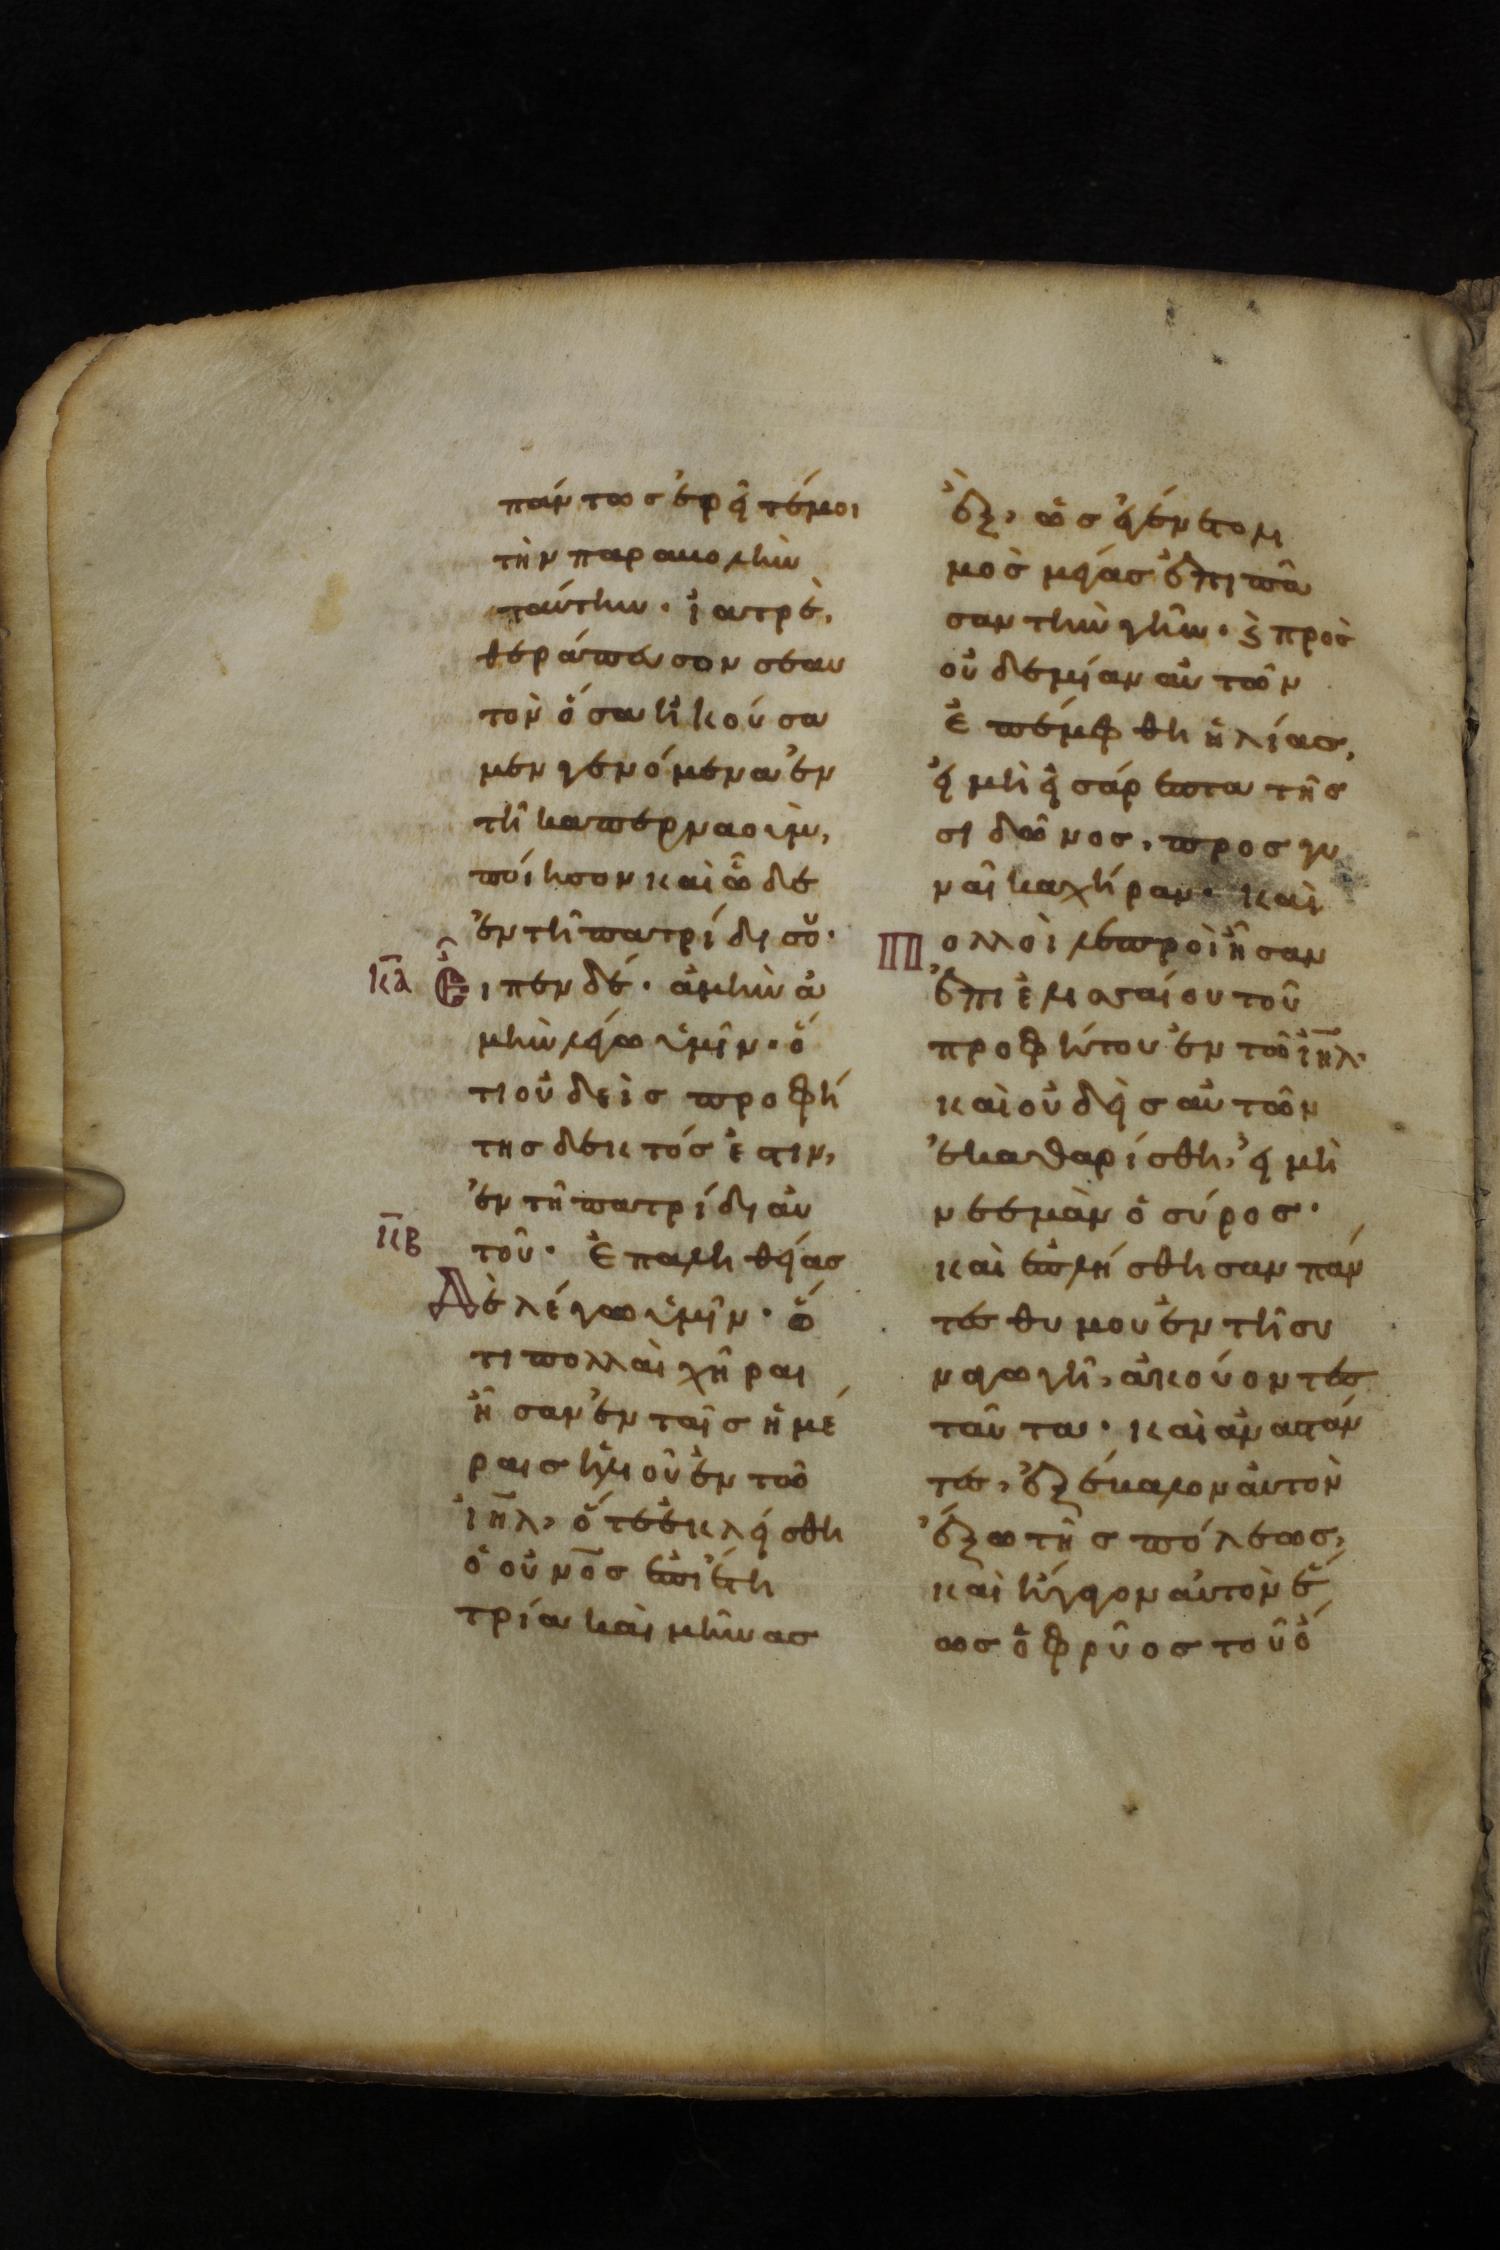 πάντως ἐρεῖτέ μοι
τὴν παραβολὴν
ταύτην· ἰατρὲ,
θεράπευσον σεαυ
τὸν ὅσα ἠκούσα
μεν γενόμενα ἐν
τῆ καπερναοὺμ,
ποίησον καὶ ὧδε
ἐν τῆ πατρίδι σου·
κα Εἶπεν δέ· ἀμὴν ἀ
μὴν λέγω ὑμῖν· ὅ
τι οὐδεὶς προφή
της δεκτός ἐστιν,
ἐν τῆ πατρίδι αὐ
κβ τοῦ· Ἐπ' ἀληθείας
Δὲ λέγω ὑμῖν· ὅ
τι πολλαὶ χῆραι
ἦσαν ἐν ταῖς ἡμέ
ραις ἡλιοῦ ἐν τῶ
ἰηλ, ὅτε ἐκλείσθη
ὁ οὐνος ἐπὶ ἔτη
τρία καὶ μῆνας
ἓξ, ὡς ἐγένετο λι
μὸς μέγας ἐπὶ πᾶ
σαν τὴν γῆν· ϗ πρὸς
οὐδεμίαν αὐτῶν
ἐπέμφθη ἡλίας,
εἰ μὴ εἰς σάρεπτα τῆς
σιδῶνος, πρὸς γυ
ναῖκα χήραν· καὶ
Πολλοὶ λεπροὶ ἦσαν
ἐπὶ ἐλισσαίου τοῦ
προφήτου ἐν τῶ ἰηλ·
καὶ οὐδεὶς αὐτῶν
ἐκαθαρίσθη, εἰ μὴ
νεεμὰν ὁ σύρος·
καὶ ἐπλήσθησαν πάν
τες θυμοῦ ἐν τῆ συ
ναγωγῆ, ἀκούοντες
ταῦτα· καὶ ἀναστάν
τες, ἐξέβαλον αὐτὸν
ἔξω τῆς πόλεως,
καὶ ἤγαγον αὐτὸν ἕ
ως ὀφρῦος τοῦ ὄ